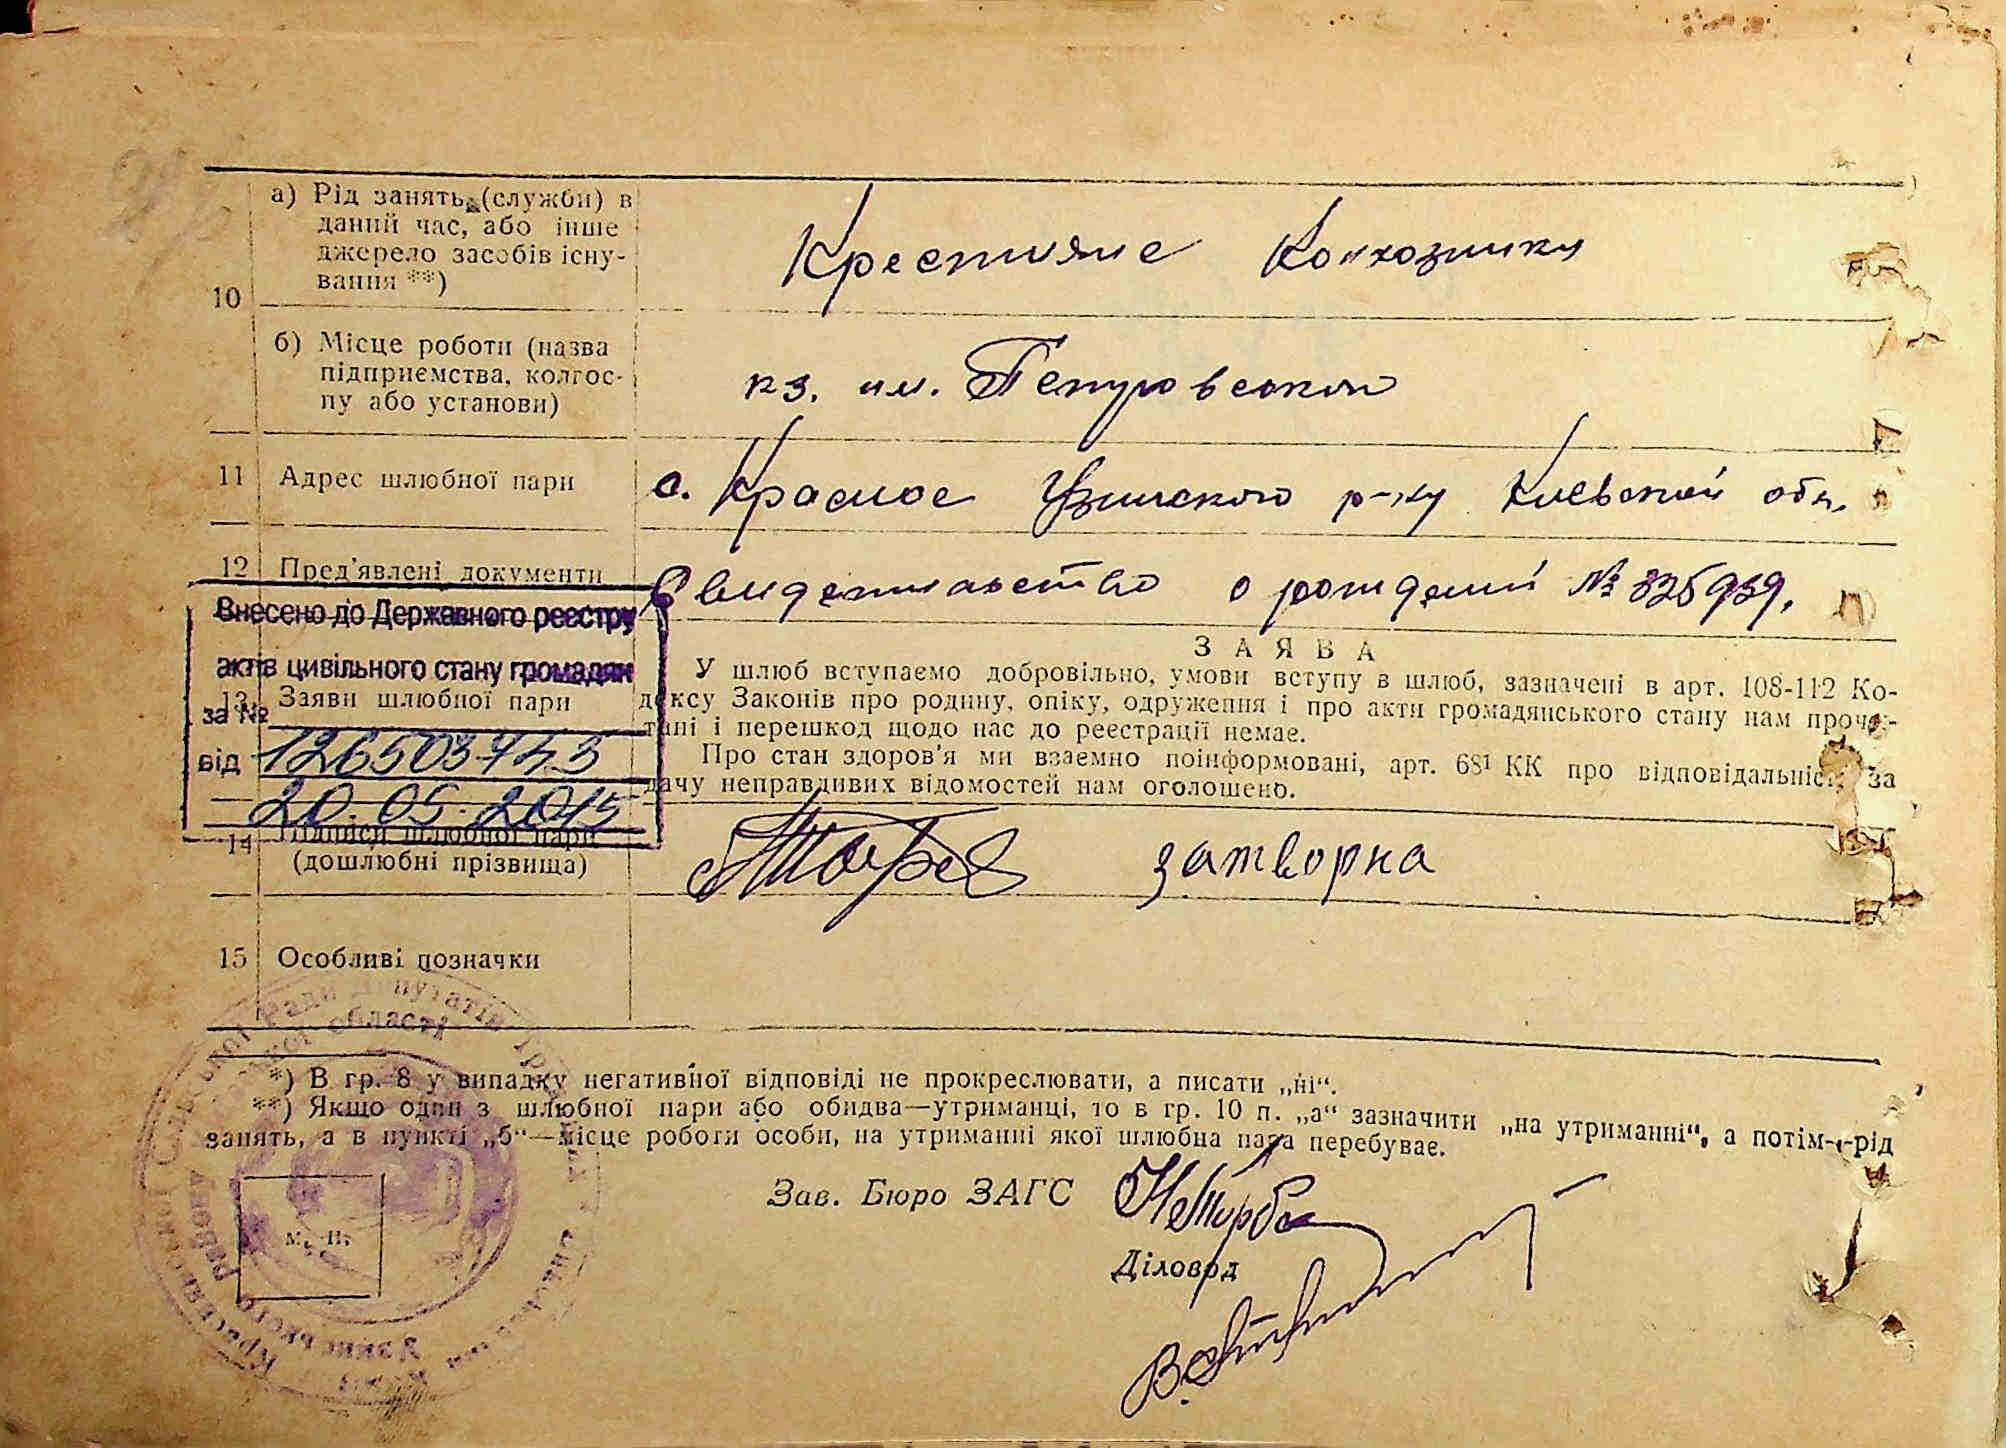 а) Рід занять (служби) в
даний час, або інше
джерело засобів існу-
вання **)
Крестияне Колхозники
10
б) Місце роботи (назва
підприємства, колгос-
пу або установи)
кз. им. Петровского
11 Адрес шлюбної пари
с. Красное Узинского р-ну Киевской обл.
12 Пред'явлені документи
Свидетельство о рождении № 325939.
Внесено до Державного реєстру
актів цивільного стану громадян
за №
126503743
від
20.05.2015
13 Заяви шлюбної пари
ЗАЯВА
У шлюб вступаємо добровільно, умови вступу в шлюб, зазначені в арт. 108-112 Ко-
дексу Законів про родину, опіку, одруження і про акти громадянського стану нам прочи-
тані і перешкод щодо нас до реєстрації немає.
Про стан здоров'я ми взаємно поінформовані, арт. 68¹ КК про відповідальність за
дачу неправдивих відомостей нам оголошено.
14 Підписи шлюбної пари
(дошлюбні прізвища)
затворна
15 Особливі позначки
*) В гр. 8 у випадку негативної відповіді не прокреслювати, а писати „ні“.
**) Якщо один з шлюбної пари або обидва—утриманці, то в гр. 10 п. „а“ зазначити „на утриманні“, а потім—рід
занять, а в пункті „б“—місце роботи особи, на утриманні якої шлюбна пара перебуває.
м. п.
Зав. Бюро ЗАГС
Діловод